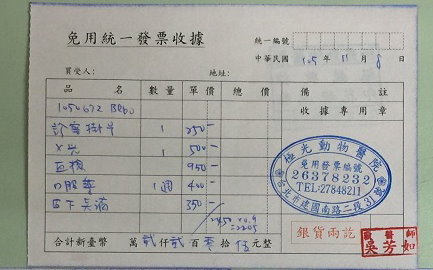 免用統一發票收據
統一編號
中華民國 105 年 11 月 8 日
買受人： 地址：
品名 數量 單價 總價 備註
收據專用章
1050672 BoBo
診察掛号 1 250-
X光 1 500-
血檢 950-
口服藥 1週 400-
350-
2450 × 0.9
= 2205
極光動物醫院
免用發票編號
26378232
TEL:27848211
台北市建國南路二段3
銀貨両訖
獸醫師
吳芳如
合計新臺幣 萬 貳 仟 貳 百 零 拾 伍 元整